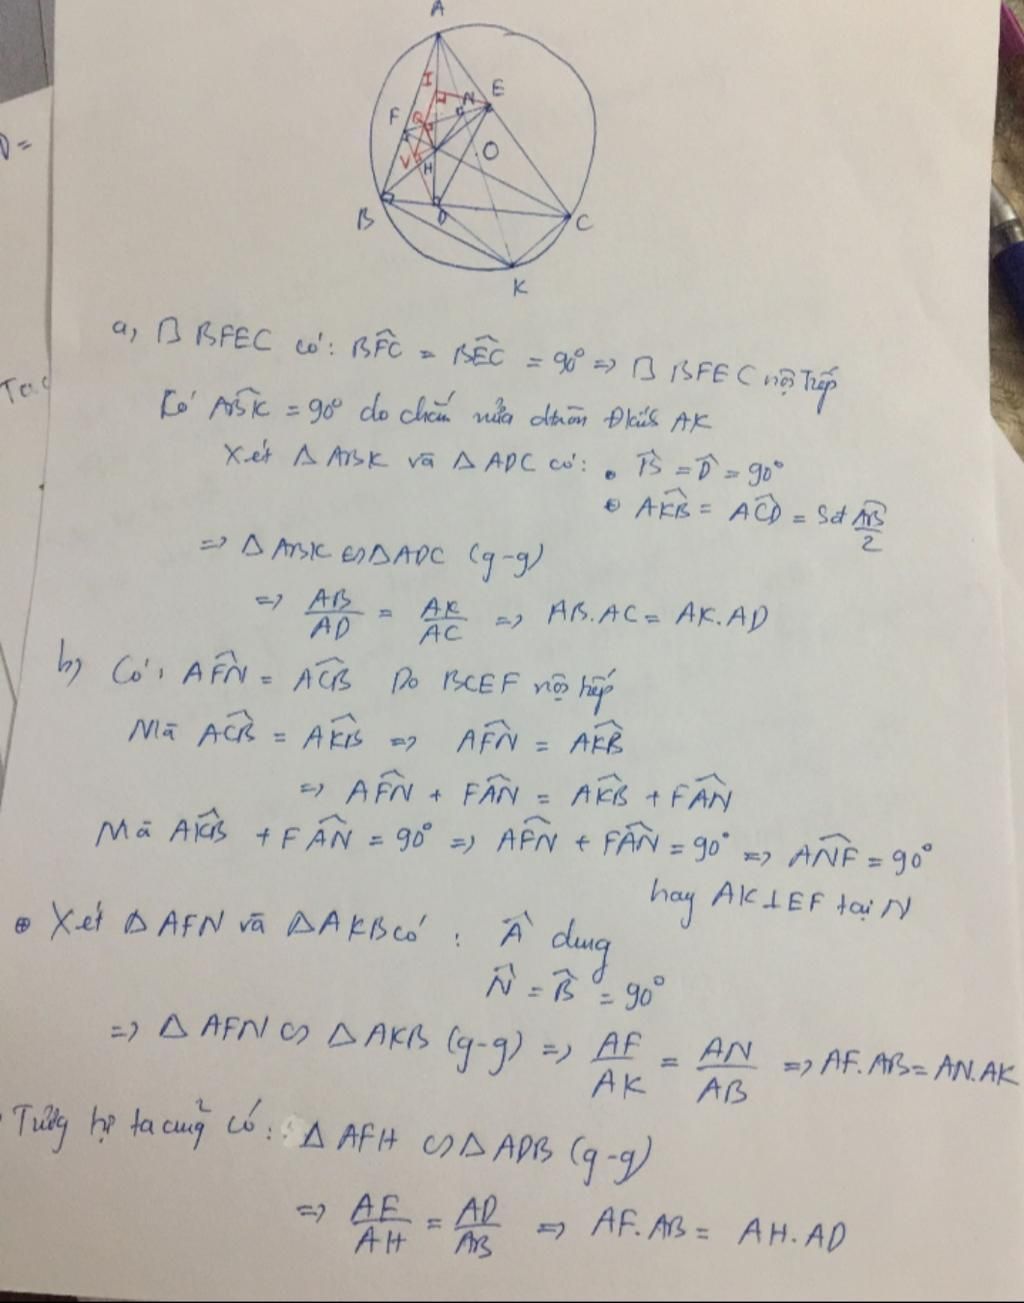 A
I
N
E
F
Q
O
V
H
B
D
C
K
D =
Ta c
a, BFEC có: BFC = BEC = 90° => BFEC nội tiếp
Có ABK = 90° do chắn nửa đtròn Đkính AK
Xét Δ ABK và Δ ADC có: • B = D = 90°
• AKB = ACD = Sđ AB/2
=> Δ ABK ∽ Δ ADC (g-g)
=> AB/AD = AK/AC => AB.AC = AK.AD
b) Có: AFN = ACB Do BCEF nội tiếp
Mà ACB = AKB => AFN = AKB
=> AFN + FAN = AKB + FAN
Mà AKB + FAN = 90° => AFN + FAN = 90° => ANF = 90°
hay AK⊥EF tại N
Xét Δ AFN và Δ AKB có: A chung
N = B = 90°
=> Δ AFN ∽ Δ AKB (g-g) => AF/AK = AN/AB => AF.AB = AN.AK
Tương tự ta cũng có: Δ AFH ∽ Δ ADB (g-g)
=> AF/AH = AD/AB => AF.AB = AH.AD